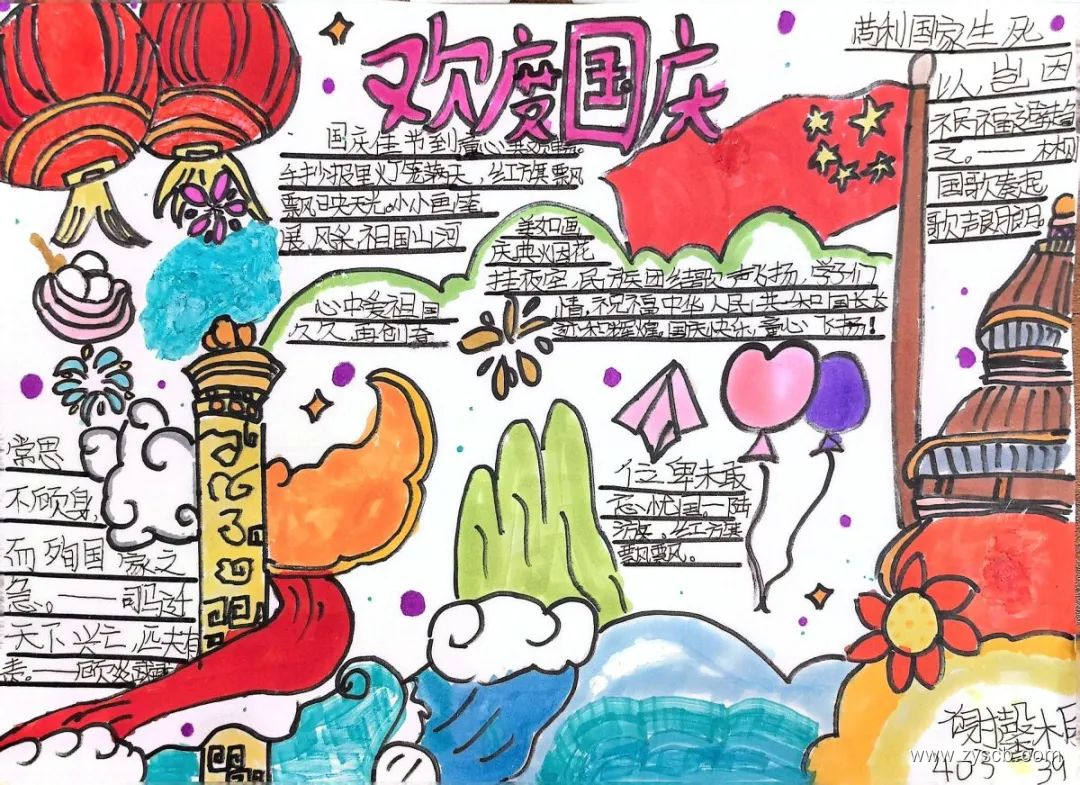 欢度国庆
国庆佳节到童心共欢唱。
手抄报里灯笼满天，红旗飘
飘映天光。小小画笔
展风采，祖国山河
美如画，
庆典烟花
挂夜空，民族团结歌声飞扬，学们
心中爱祖国
情，祝福中华人民共和国长长
久久，再创奇
国庆快乐，童心飞扬！
苟利国家生死
以，岂因
之。——林
国歌奏起
歌声朗朗
常思
不顾身，
而殉国家之
急。——司马迁
天下兴亡，匹夫有
责。——顾炎武
位卑未敢
忘忧国。——陆
游，红旗
飘飘。
403 39
www.zyscb.com